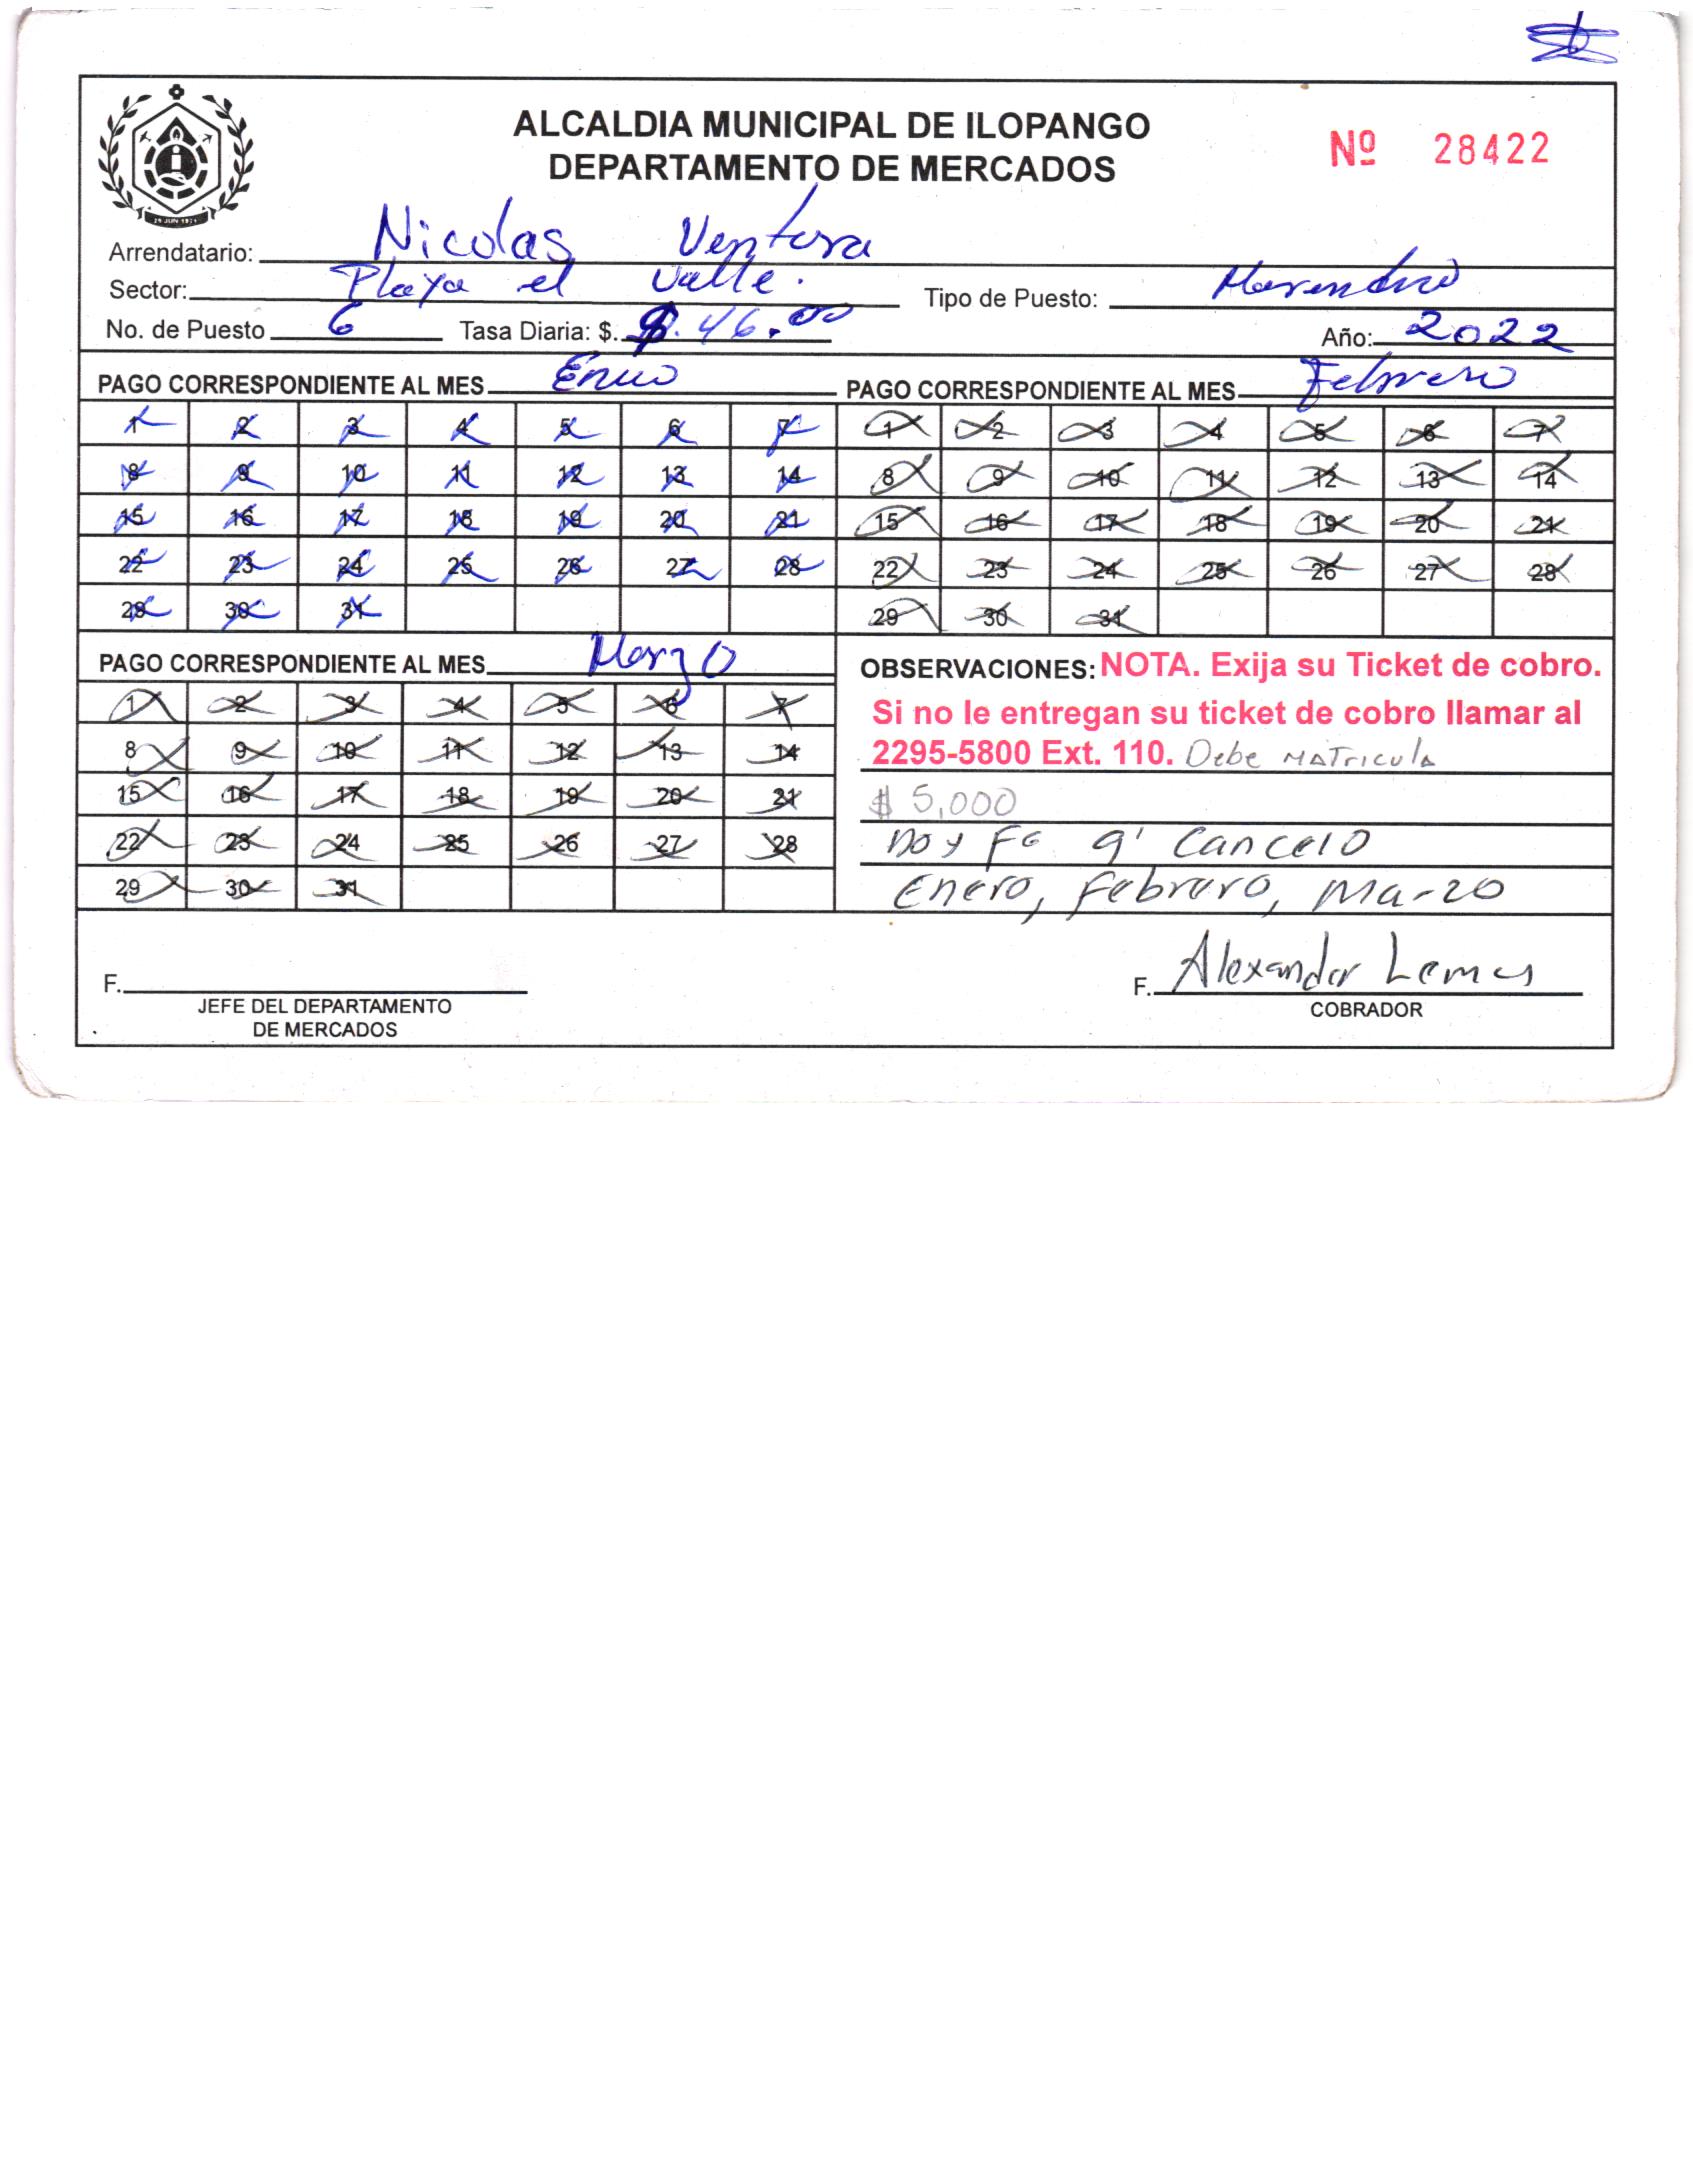 ALCALDIA MUNICIPAL DE ILOPANGO
DEPARTAMENTO DE MERCADOS
Nº 28422
29 JUN 1971
Arrendatario: Nicolas Ventura
Sector: Playa el Valle.
Tipo de Puesto:
No. de Puesto 6 Tasa Diaria: $. $. 46.00
Año: 2022
PAGO CORRESPONDIENTE AL MES Enero
1 2 3 4 5 6 7
8 9 10 11 12 13 14
15 16 17 18 19 20 21
22 23 24 25 26 27 28
29 30 31
PAGO CORRESPONDIENTE AL MES Febrero
1 2 3 4 5 6 7
8 9 10 11 12 13 14
15 16 17 18 19 20 21
22 23 24 25 26 27 28
29 30 31
PAGO CORRESPONDIENTE AL MES Marzo
1 2 3 4 5 6 7
8 9 10 11 12 13 14
15 16 17 18 19 20 21
22 23 24 25 26 27 28
29 30 31
OBSERVACIONES: NOTA. Exija su Ticket de cobro.
Si no le entregan su ticket de cobro llamar al
2295-5800 Ext. 110. Debe MATricula
$ 5,000
Doy Fe q' Cancelo
Enero, Febrero, Marzo
F.
JEFE DEL DEPARTAMENTO
DE MERCADOS
F. Alexander Lemus
COBRADOR